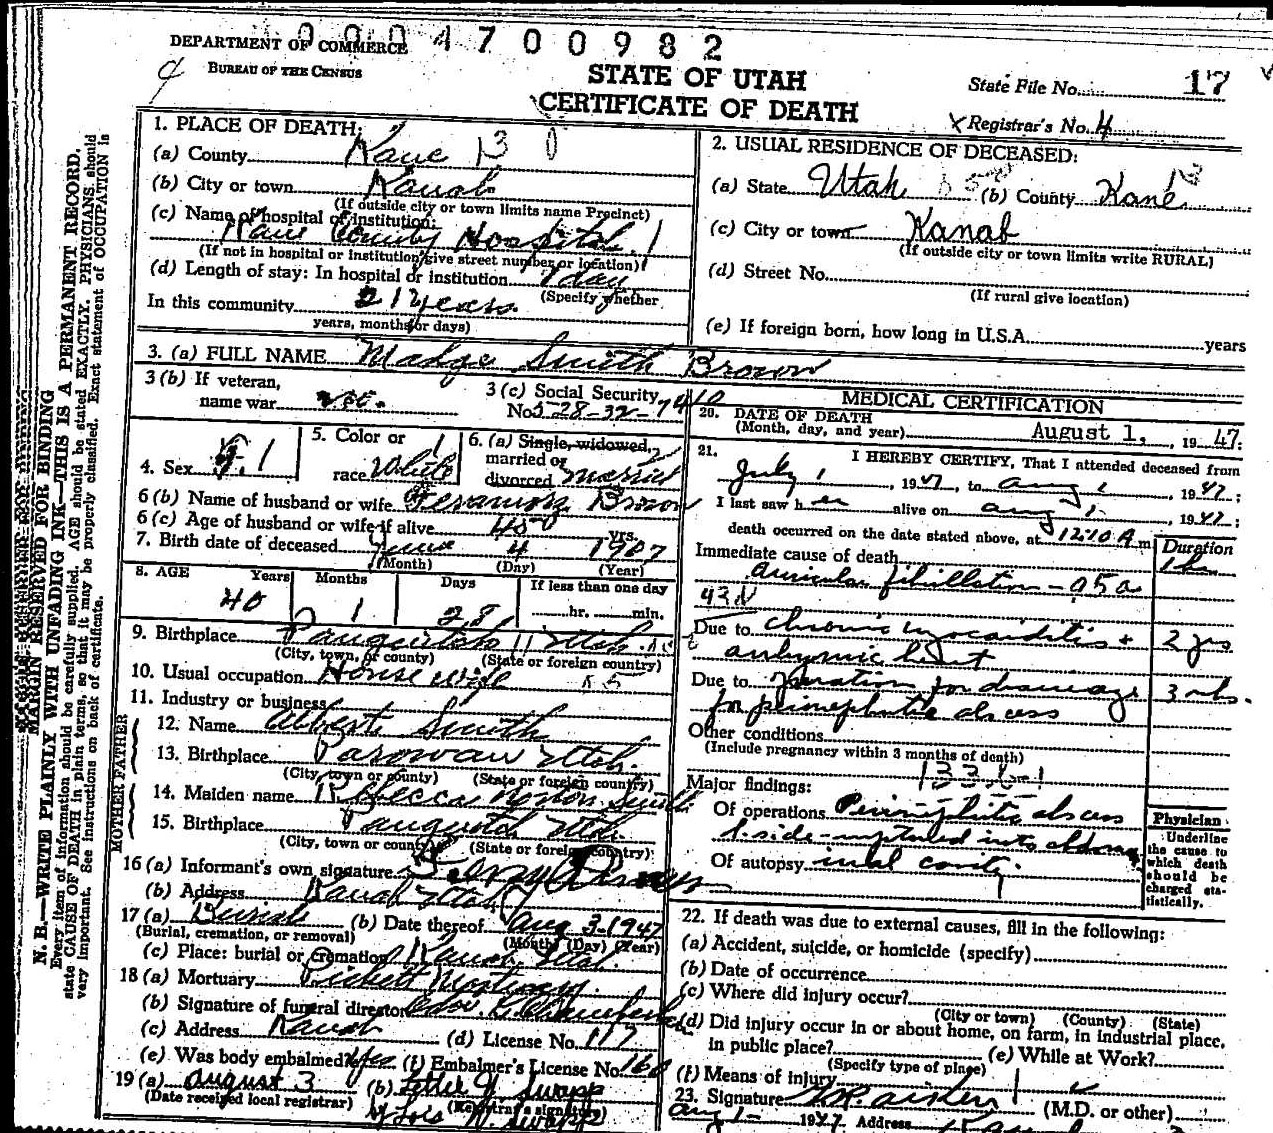 0004700982
DEPARTMENT OF COMMERCE
BUREAU OF THE CENSUS
STATE OF UTAH
CERTIFICATE OF DEATH
State File No. 17
Registrar's No. 4
1. PLACE OF DEATH:
(a) County Kane 13 0
(b) City or town Kanab
(If outside city or town limits name Precinct)
(c) Name of hospital or institution:
Kane County Hospital 1
(If not in hospital or institution give street number or location)
(d) Length of stay: In hospital or institution 1 day
(Specify whether
In this community 21 years
years, months or days)
2. USUAL RESIDENCE OF DECEASED:
(a) State Utah (b) County Kane 13
(c) City or town Kanab
(If outside city or town limits write RURAL)
(d) Street No.
(If rural give location)
(e) If foreign born, how long in U.S.A. years
3. (a) FULL NAME Madge Smith Brown
3 (b) If veteran,
name war no.
3 (c) Social Security
No. 528-32-7410
4. Sex F. 1
5. Color or
race White 1
6. (a) Single, widowed,
married or
divorced married
6 (b) Name of husband or wife Feramorz Brown
6 (c) Age of husband or wife if alive yrs.
7. Birth date of deceased June 4 1907
(Month) (Day) (Year)
8. AGE Years Months Days If less than one day
40 1 28 hr. min.
9. Birthplace Panguitch Utah
(City, town, or county) (State or foreign country)
10. Usual occupation House wife
11. Industry or business
FATHER
12. Name Albert Smith
13. Birthplace Parowan Utah.
(City, town or county) (State or foreign country)
MOTHER
14. Maiden name Rebecca Norton Smith
15. Birthplace Panguitch Utah.
(City, town or county) (State or foreign country)
16 (a) Informant's own signature
(b) Address Kanab Utah
17 (a) Burial (b) Date thereof Aug 3-1947
(Burial, cremation, or removal) (Month) (Day) (Year)
(c) Place: burial or cremation Kanab Utah.
18 (a) Mortuary Mortuary
(b) Signature of funeral director
(c) Address Kanab (d) License No. 117
(e) Was body embalmed? Yes (f) Embalmer's License No. 160
19 (a) August 3 (b) Swapp
(Date received local registrar) (Registrar's signature)
by Lois N. Swapp
MEDICAL CERTIFICATION
20. DATE OF DEATH
(Month, day, and year) August 1, 1947.
21. I HEREBY CERTIFY, That I attended deceased from
July 1, 1947, to Aug 1, 1947;
I last saw h er alive on Aug 1, 1947;
death occurred on the date stated above, at 12:10 A m
Duration
Immediate cause of death 1 hr
auricular fibrillation - 95a
93d
Due to chronic myocarditis + 2 yrs
Due to for drainage 3
for perinephritic abscess
Other conditions
(Include pregnancy within 3 months of death)
Major findings:
Of operations Perinephritic abscess
side-ruptured into
Of autopsy
Physician
Underline
the cause to
which death
should be
charged sta-
tistically.
22. If death was due to external causes, fill in the following:
(a) Accident, suicide, or homicide (specify)
(b) Date of occurrence
(c) Where did injury occur?
(City or town) (County) (State)
(d) Did injury occur in or about home, on farm, in industrial place,
in public place? (e) While at Work?
(Specify type of place)
(f) Means of injury
23. Signature Aiken (M.D. or other)
Aug 1- 1947. Address
MARGIN RESERVED FOR BINDING
N. B.—WRITE PLAINLY WITH UNFADING INK—THIS IS A PERMANENT RECORD.
Every item of information should be carefully supplied. AGE should be stated EXACTLY. PHYSICIANS should
state CAUSE OF DEATH in plain terms, so that it may be properly classified. Exact statement of OCCUPATION is
very important. See instructions on back of certificate.